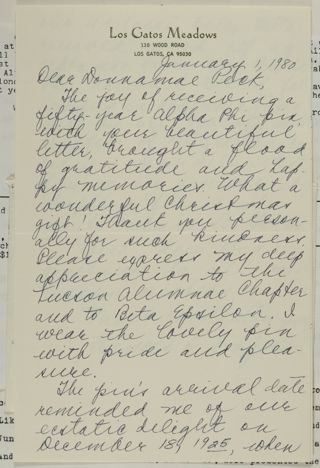 Los Gatos Meadows
110 WOOD ROAD
LOS GATOS, CA 95030
January 1, 1980
Dear Donna Mae Peck,
The joy of receiving a
fifty-year Alpha Phi pin
with your beautiful
letter, brought a flood
of gratitude and hap-
py memories. What a
wonderful Christmas
gift! Thank you person-
ally for such kindness.
Please express my deep
appreciation to the
Tucson Alumnae Chapter
and to Beta Epsilon. I
wear the lovely pin
with pride and plea-
sure.
The pin's arrival date
reminded me of our
ecstatic delight on
December 18, 1925, when